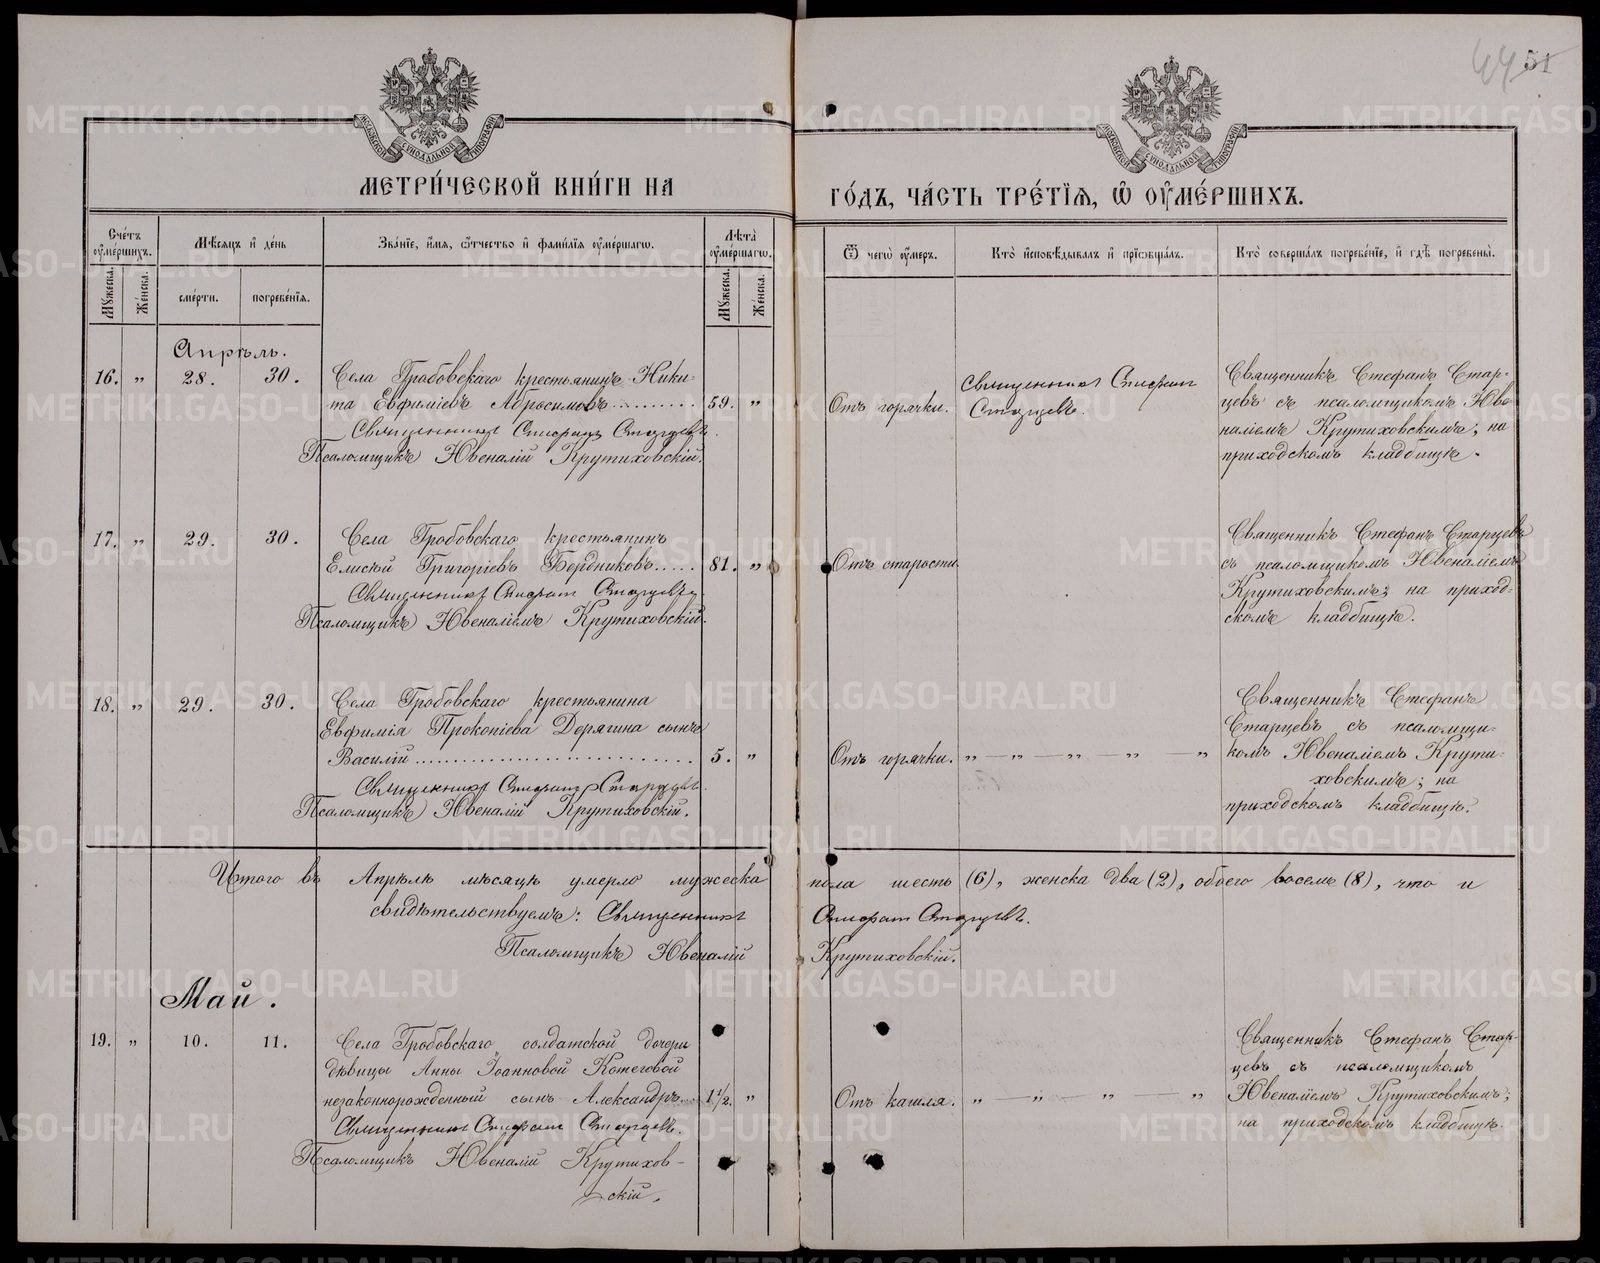 44 51
МЕТРИ́ЧЕСКОЙ КНИ́ГИ НА
ГО́ДЪ, ЧА́СТЬ ТРЕ́ТЇѦ, Ѡ҆ ОУ҆МЕ́РШИХЪ.
Сче́тъ оу҆ме́ршихъ.
Мꙋ́жеска.
Же́нска.
Мѣ́сѧцъ и҆ де́нь
сме́рти.
погребе́нїѧ.
Зва́нїе, и҆́мѧ, ѻ҆́тчество и҆ фами́лїѧ оу҆ме́ршагѡ.
Лѣ́та оу҆ме́ршагѡ.
Мꙋ́жеска.
Же́нска.
Ѿ чегѡ̀ оу҆́меръ.
Кто̀ и҆сповѣ́дывалъ и҆ прїѡбща́лъ.
Кто̀ соверша́лъ погребе́нїе, и҆ гдѣ̀ погребены̀.
Апрѣль.
16. „ 28. 30.
Села Гробовскаго крестьянинъ Ники-
та Евфиміевъ Абросимовъ 59. „
Священникъ Стефанъ Старцевъ.
Псаломщикъ Ювеналій Крутиховскій.
Отъ горячки.
Священникъ Стефанъ
Старцевъ.
Священникъ Стефанъ Стар-
цевъ съ псаломщикомъ Юве-
наліемъ Крутиховскимъ; на
приходскомъ кладбищѣ.
17. „ 29. 30.
Села Гробовскаго крестьянинъ
Елисѣй Григоріевъ Бердниковъ..... 81. „
Священникъ Стефанъ Старцевъ
Псаломщикъ Ювеналіемъ Крутиховскій.
Отъ старости.
Священникъ Стефанъ Старцевъ
съ псаломщикомъ Ювеналіемъ
Крутиховскимъ; на приход-
скомъ кладбищѣ.
18. „ 29. 30.
Села Гробовскаго крестьянина
Евфимія Прокопіева Дерягина сынъ
Василій 5. „
Священникъ Стефанъ Старцевъ.
Псаломщикъ Ювеналій Крутиховскій.
Отъ горячки. „ — „ — „ — „ — „
Священникъ Стефанъ
Старцевъ съ псаломщи-
комъ Ювеналіемъ Крути-
ховскимъ; на
приходскомъ кладбищѣ.
Итого въ Апрѣлѣ мѣсяцѣ умерло мужеска пола шесть (6), женска два (2), обоего восемь (8), что и
свидѣтельствуемъ: Священникъ Стефанъ Старцевъ.
Псаломщикъ Ювеналій Крутиховскій.
Май.
19. „ 10. 11.
Села Гробовскаго солдатской дочери
дѣвицы Анны Іоанновой Котеговой
незаконнорожденный сынъ Александръ... 1 1/2. „
Священникъ Стефанъ Старцевъ.
Псаломщикъ Ювеналій Крутихов-
скій.
Отъ кашля. „ — „ — „ — „
Священникъ Стефанъ Стар-
цевъ съ псаломщикомъ
Ювеналіемъ Крутиховскимъ;
на приходскомъ кладбищѣ.
METRIKI.GASO-URAL.RU